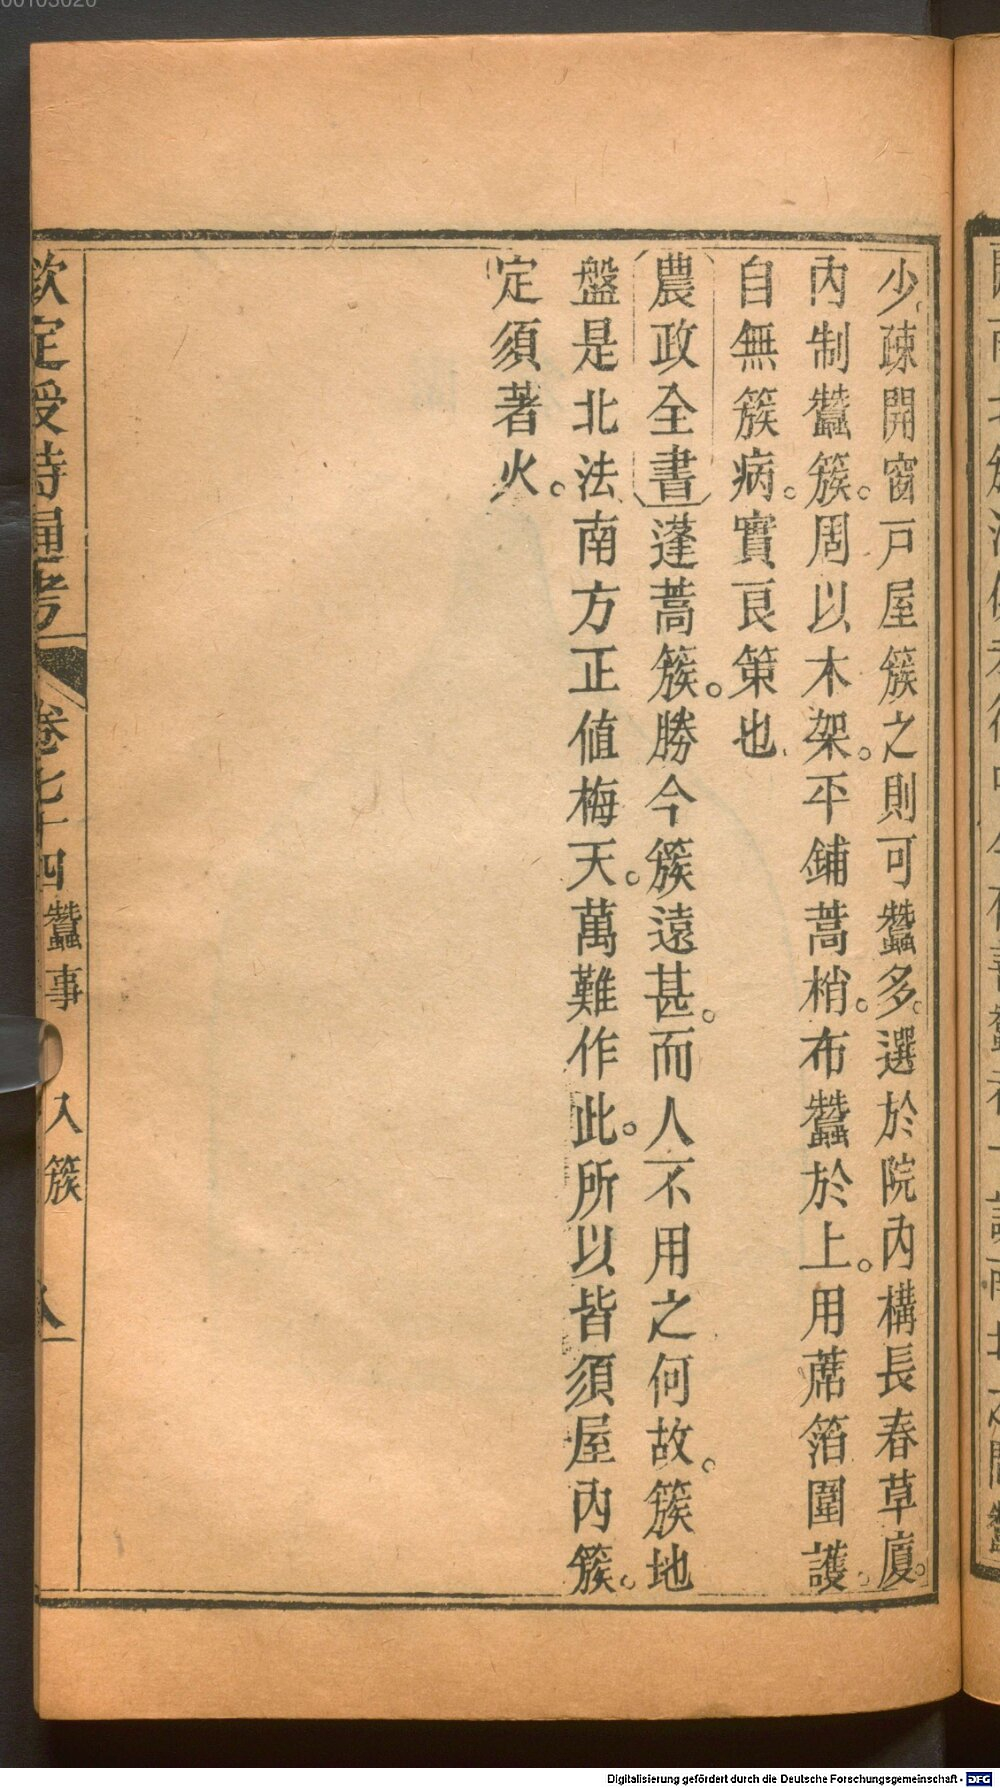 少疎開窗戸屋簇之則可蠶多選於院內構長春草廈。
內制蠶簇。周以木架。平鋪蒿梢。布蠶於上。用蓆箔圍護。
自無簇病。實良策也
農政全書蓬蒿簇。勝今簇遠甚。而人不用之何故。簇地
盤是北法南方正値梅天。萬難作此。所以皆須屋內簇。
定須著火。
欽定授時通考 卷七十四 蠶事 入簇 八
00103020
Digitalisierung gefördert durch die Deutsche Forschungsgemeinschaft - DFG